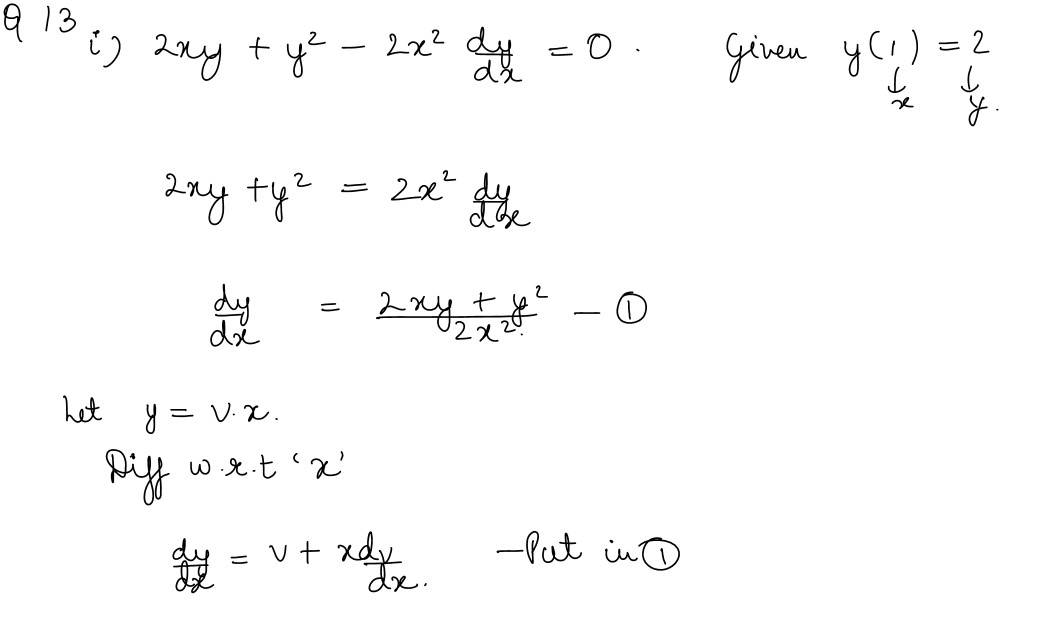 Q 13 i) 2xy + y² − 2x² dy/dx = 0 . Given y(1) = 2
↓ ↓
x y.
2xy + y² = 2x² dy/dx
dy/dx = 2xy + y² / 2x². − ①
Let y = v.x.
Diff w.r.t 'x'
dy/dx = v + xdv/dx. − Put in ①